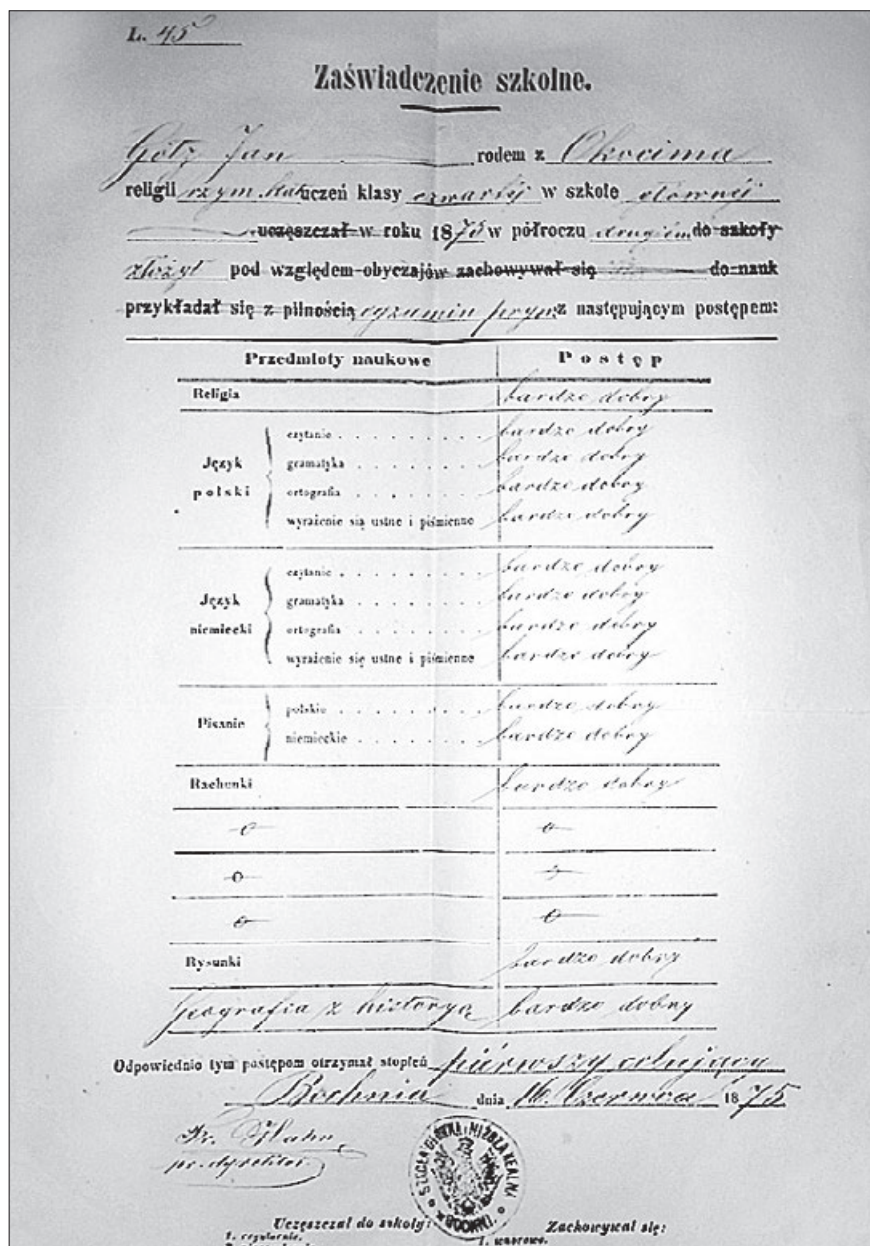 L. 45
Zaświadczenie szkolne.
Götz Jan rodem z Okocima
religii rzym. kat. uczeń klasy czwartéj w szkole głównéj
uczęszczał w roku 1875 w półroczu drugiém do szkoły
złożył pod względem obyczajów zachowywał się do nauk
przykładał się z pilnością egzamin pryw. z następującym postępem:
Przedmioty naukowe Postęp
Religia bardzo dobry
Język polski
czytanie bardzo dobry
gramatyka bardzo dobry
ortografia bardzo dobry
wyrażenie się ustne i piśmienne bardzo dobry
Język niemiecki
czytanie bardzo dobry
gramatyka bardzo dobry
ortografia bardzo dobry
wyrażenie się ustne i piśmienne bardzo dobry
Pisanie
polskie bardzo dobry
niemieckie bardzo dobry
Rachunki bardzo dobry
Rysunki bardzo dobry
Geografia z historyą bardzo dobry
Odpowiednio tym postępom otrzymał stopień pierwszy celujący
Bochnia dnia 16. Czerwca 1875
Fr. Hahn
pr. dyrektor
SZKOŁA GŁÓWNA I NIŻSZA REALNA W BOCHNI.
Uczęszczał do szkoły: Zachowywał się:
1. regularnie. 1. wzorowo.